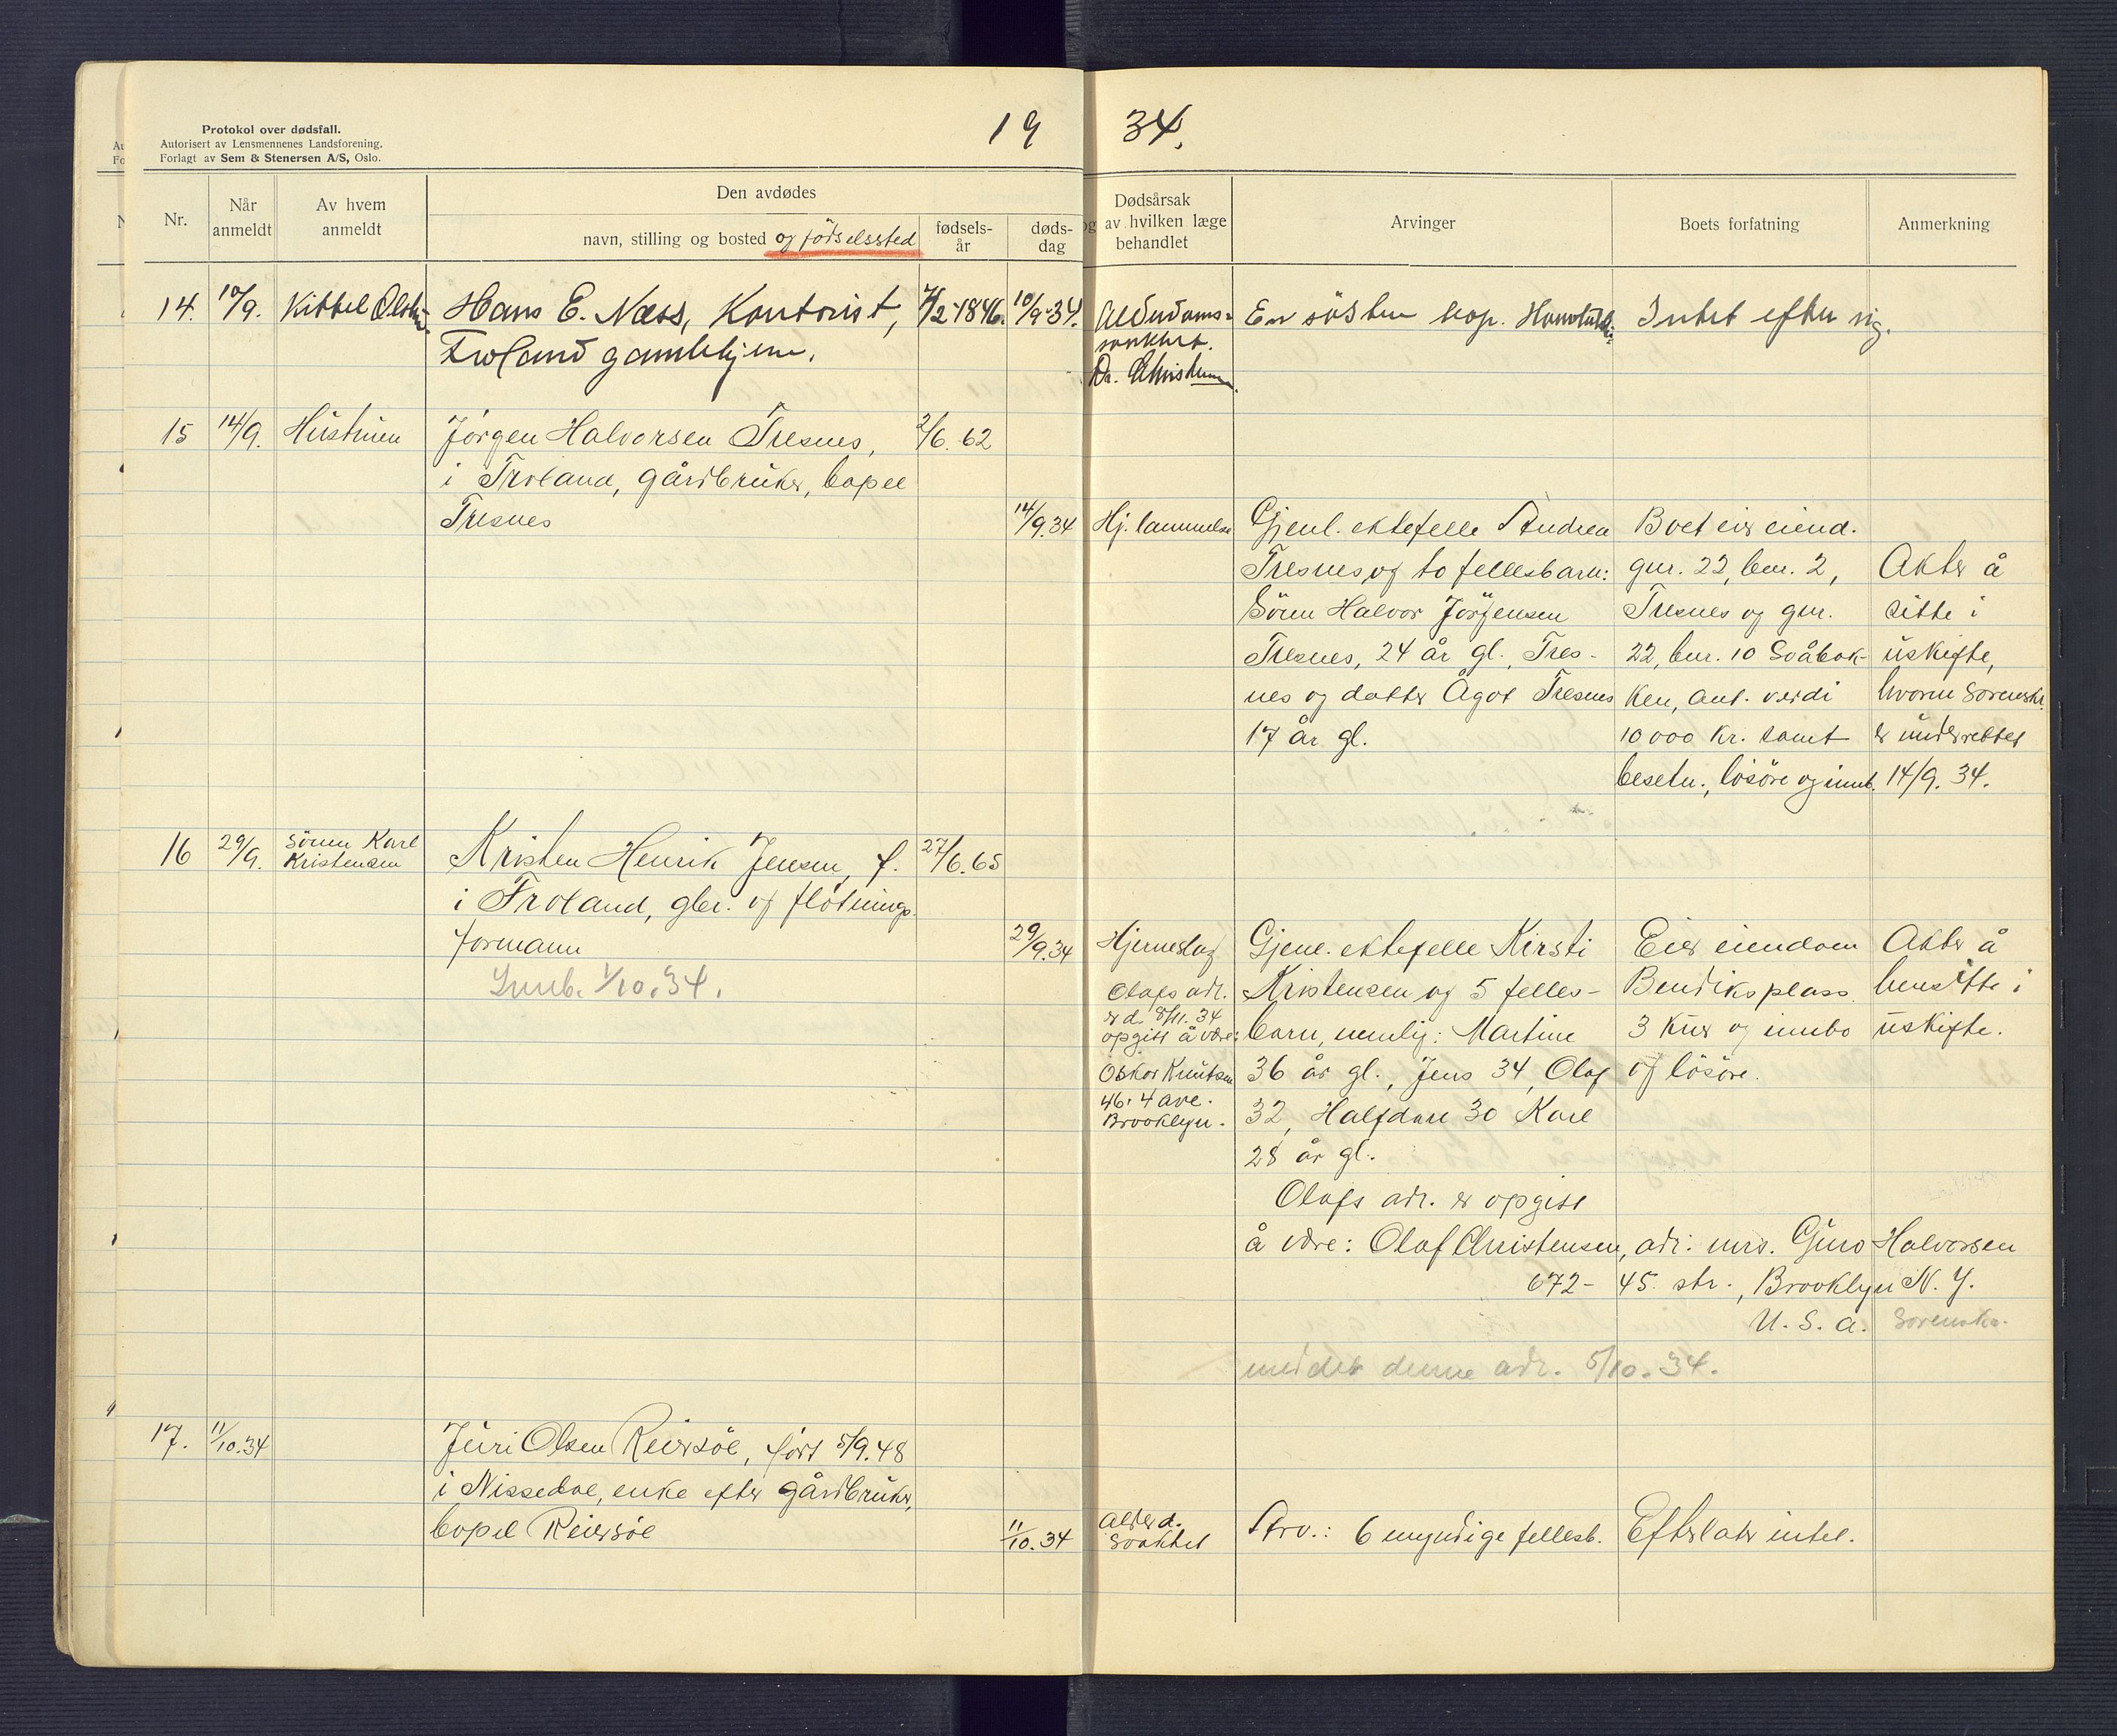 Protokol over dødsfall.
Autorisert av Lensmennenes Landsforening.
Forlagt av Sem & Stenersen A/S, Oslo.
19 34.
Nr.
Når anmeldt
Av hvem anmeldt
Den avdødes
navn, stilling og bosted og fødselssted
fødsels-år
døds-dag
Dødsårsak
og av hvilken læge
behandlet
Arvinger
Boets forfatning
Anmerkning
14. 10/9. Kittel Olsen
Hans E. Næss, Kontorist,
Froland gamlehjem.
/2-1846. 10/9-34.
Alderdoms-
svakhet.
Dr. Christensen
En søster bop.
Intet efter sig.
15 14/9. Hustruen
Jörgen Halvorsen Tresnes,
i Froland, gårdbruker, bopel
Tresnes
2/6. 62
14/9.34
Hj. lammelse
Gjenl. ektefelle Andrea
Tresnes og to fellesbarn:
Sören Halvor Jörgensen
Tresnes, 24 år gl., Tres-
nes og datter Ågot Tresnes
17 år gl.
Boet eier eiend.
gnr. 22, bnr. 2,
Tresnes og gnr.
22, bnr. 10 Svåbak-
ken, ant. verdi
10 000 kr. samt
besetn., lösöre og innb.
Akter å
sitte i
uskifte,
hvorom Sorenskr.
er underrettet
14/9. 34.
16 29/9. Sören Karl
Kristensen
Kristen Henrik Jensen, f.
i Froland, gbr. og flötnings-
formann
Innb. 1/10.34.
27/6.65
29/9.34
Hjerneslag
Olafs adr.
er d. 8/11. 34
opgitt å være:
Oskar Knutsen
46. 4 ave.
Brooklyn.
Gjenl. ektefelle Kirsti
Kristensen og 5 felles-
barn, nemlig: Martine
36 år gl., Jens 34, Olaf
32, Halfdan 30 Karl
28 år gl.
Olafs adr. er opgitt
å være: Olaf Christensen, adr. mrs. Guro Halvorsen
672- 45. str., Brooklyn N. Y.
U. S. A. Sorenskr.
meddelt denne adr. 5/10. 34.
Eier eiendom
Bendiksplass
3 kuer og innbo
og lösöre.
Akter å
hensitte i
uskifte.
17. 11/10.34
Juri Olsen Reiersöl, född 5/9.48
i Nissedal, enke efter gårdbruker,
bopel Reiersöl
11/10.34
Alderd.
svakhet
Arv.: 6 myndige fellesb.
Efterlater intet.